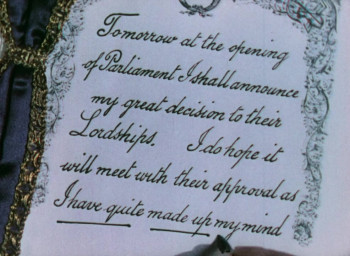 Tomorrow at the opening
of Parliament I shall announce
my great decision to their
Lordships. I do hope it
will meet with their approval as
I have quite made up my mind